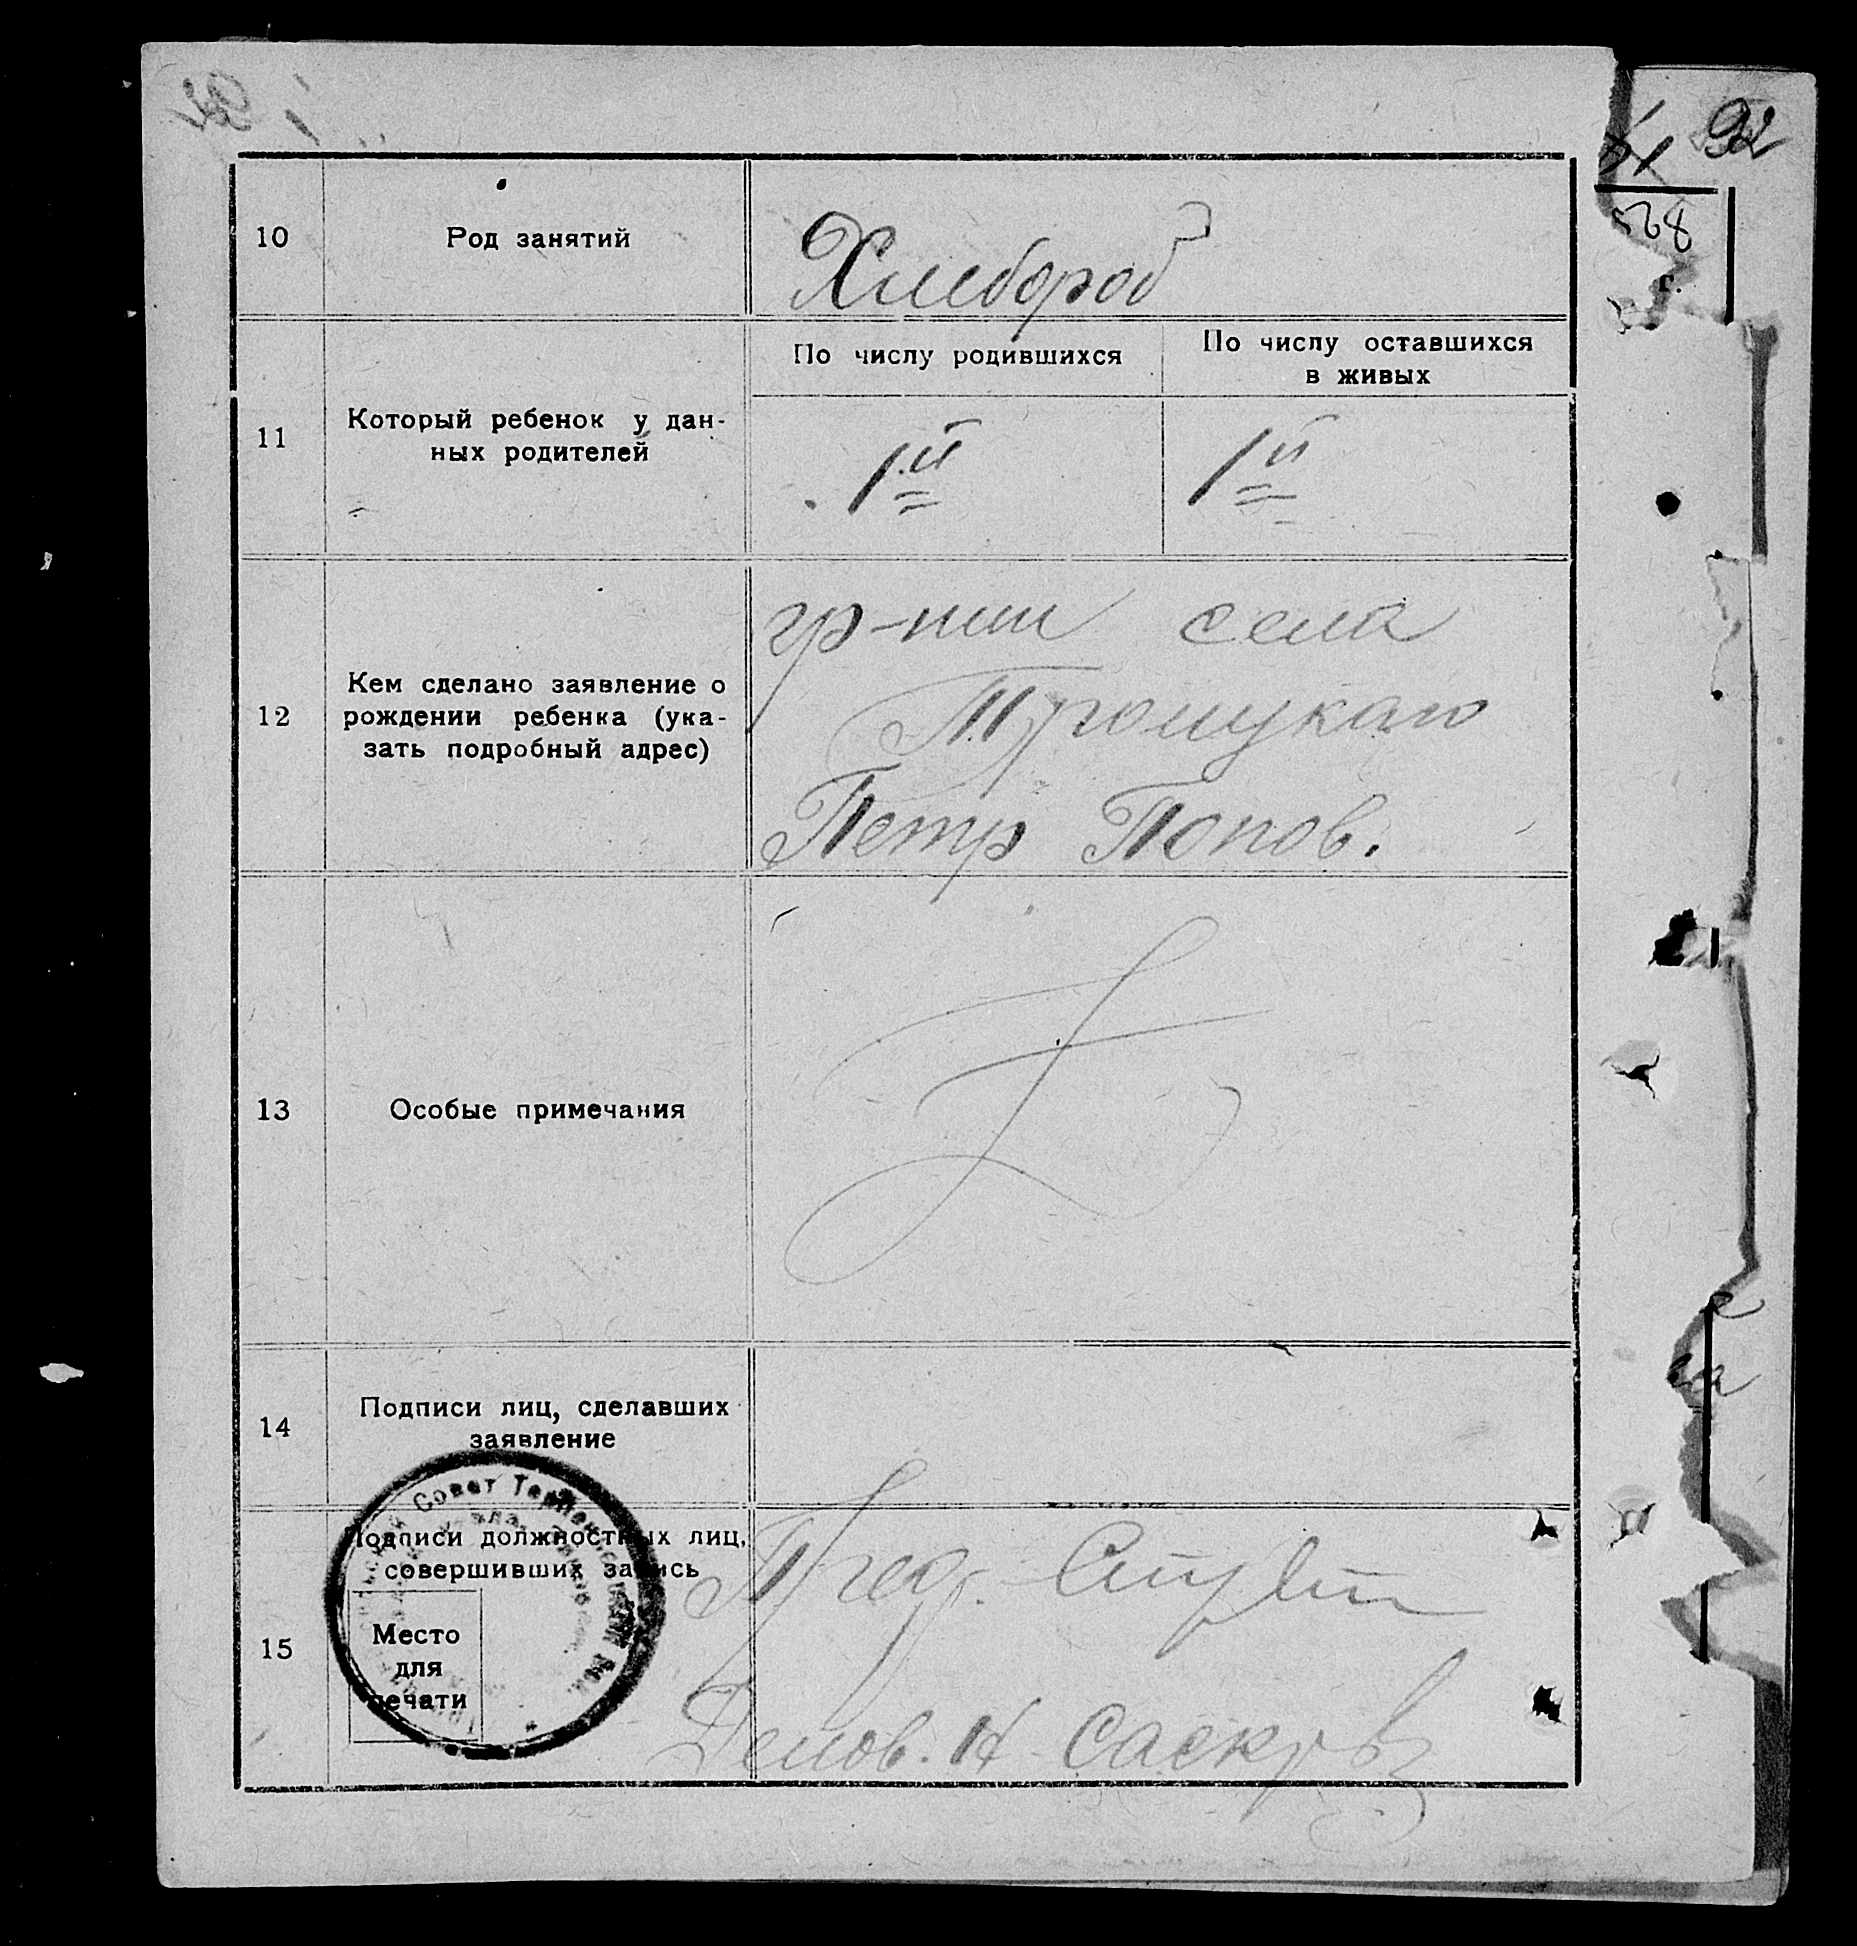 92
528
г.
10
Род занятий
Хлебороб
11
Который ребенок у дан-
ных родителей
По числу родившихся
По числу оставшихся
в живых
1й
1й
12
Кем сделано заявление о
рождении ребенка (ука-
зать подробный адрес)
гр-нин села
Троицкаго
Петр Попов.
13
Особые примечания
14
Подписи лиц, сделавших
заявление
15
Подписи должностных лиц,
совершивших запись
Место
для
печати
Совет
Пред.
Делов. И.